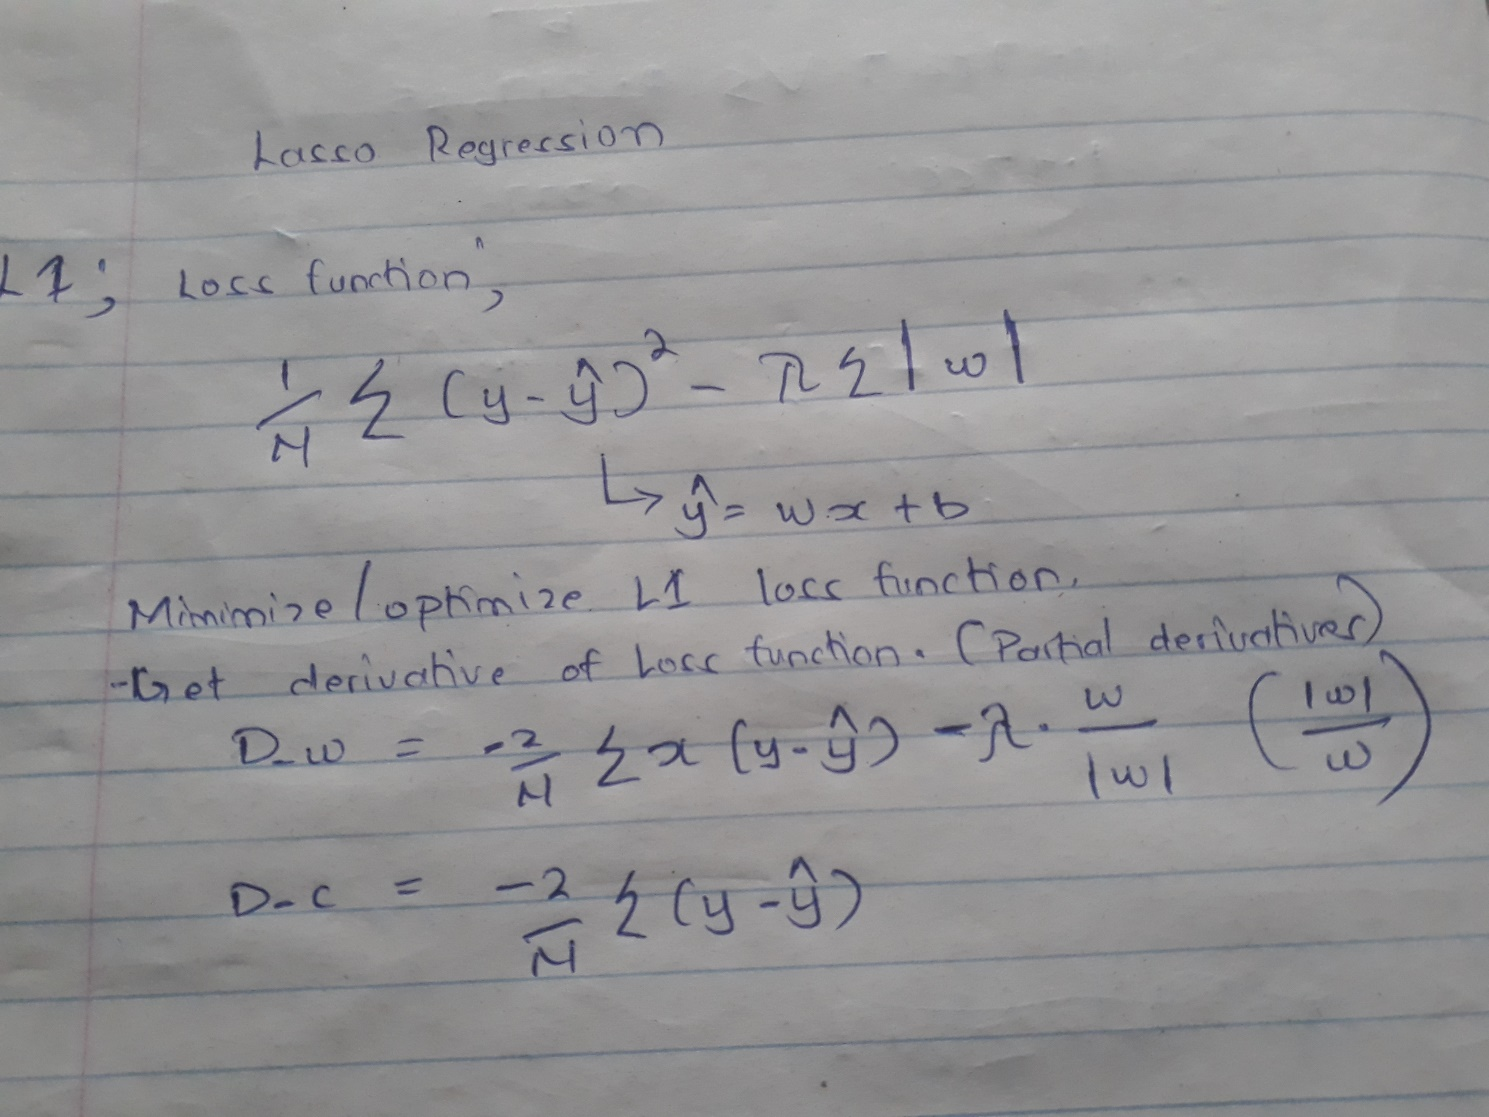 Lasso Regression
L1; Loss function;
1/N Σ (y-ŷ)² - λ Σ |w|
↳ ŷ = wx + b
Minimize/optimize L1 loss function.
-Get derivative of Loss function. (Partial derivatives)
D_w = -2/N Σ x (y-ŷ) - λ. w/|w| (|w|/w)
D_c = -2/N Σ (y-ŷ)